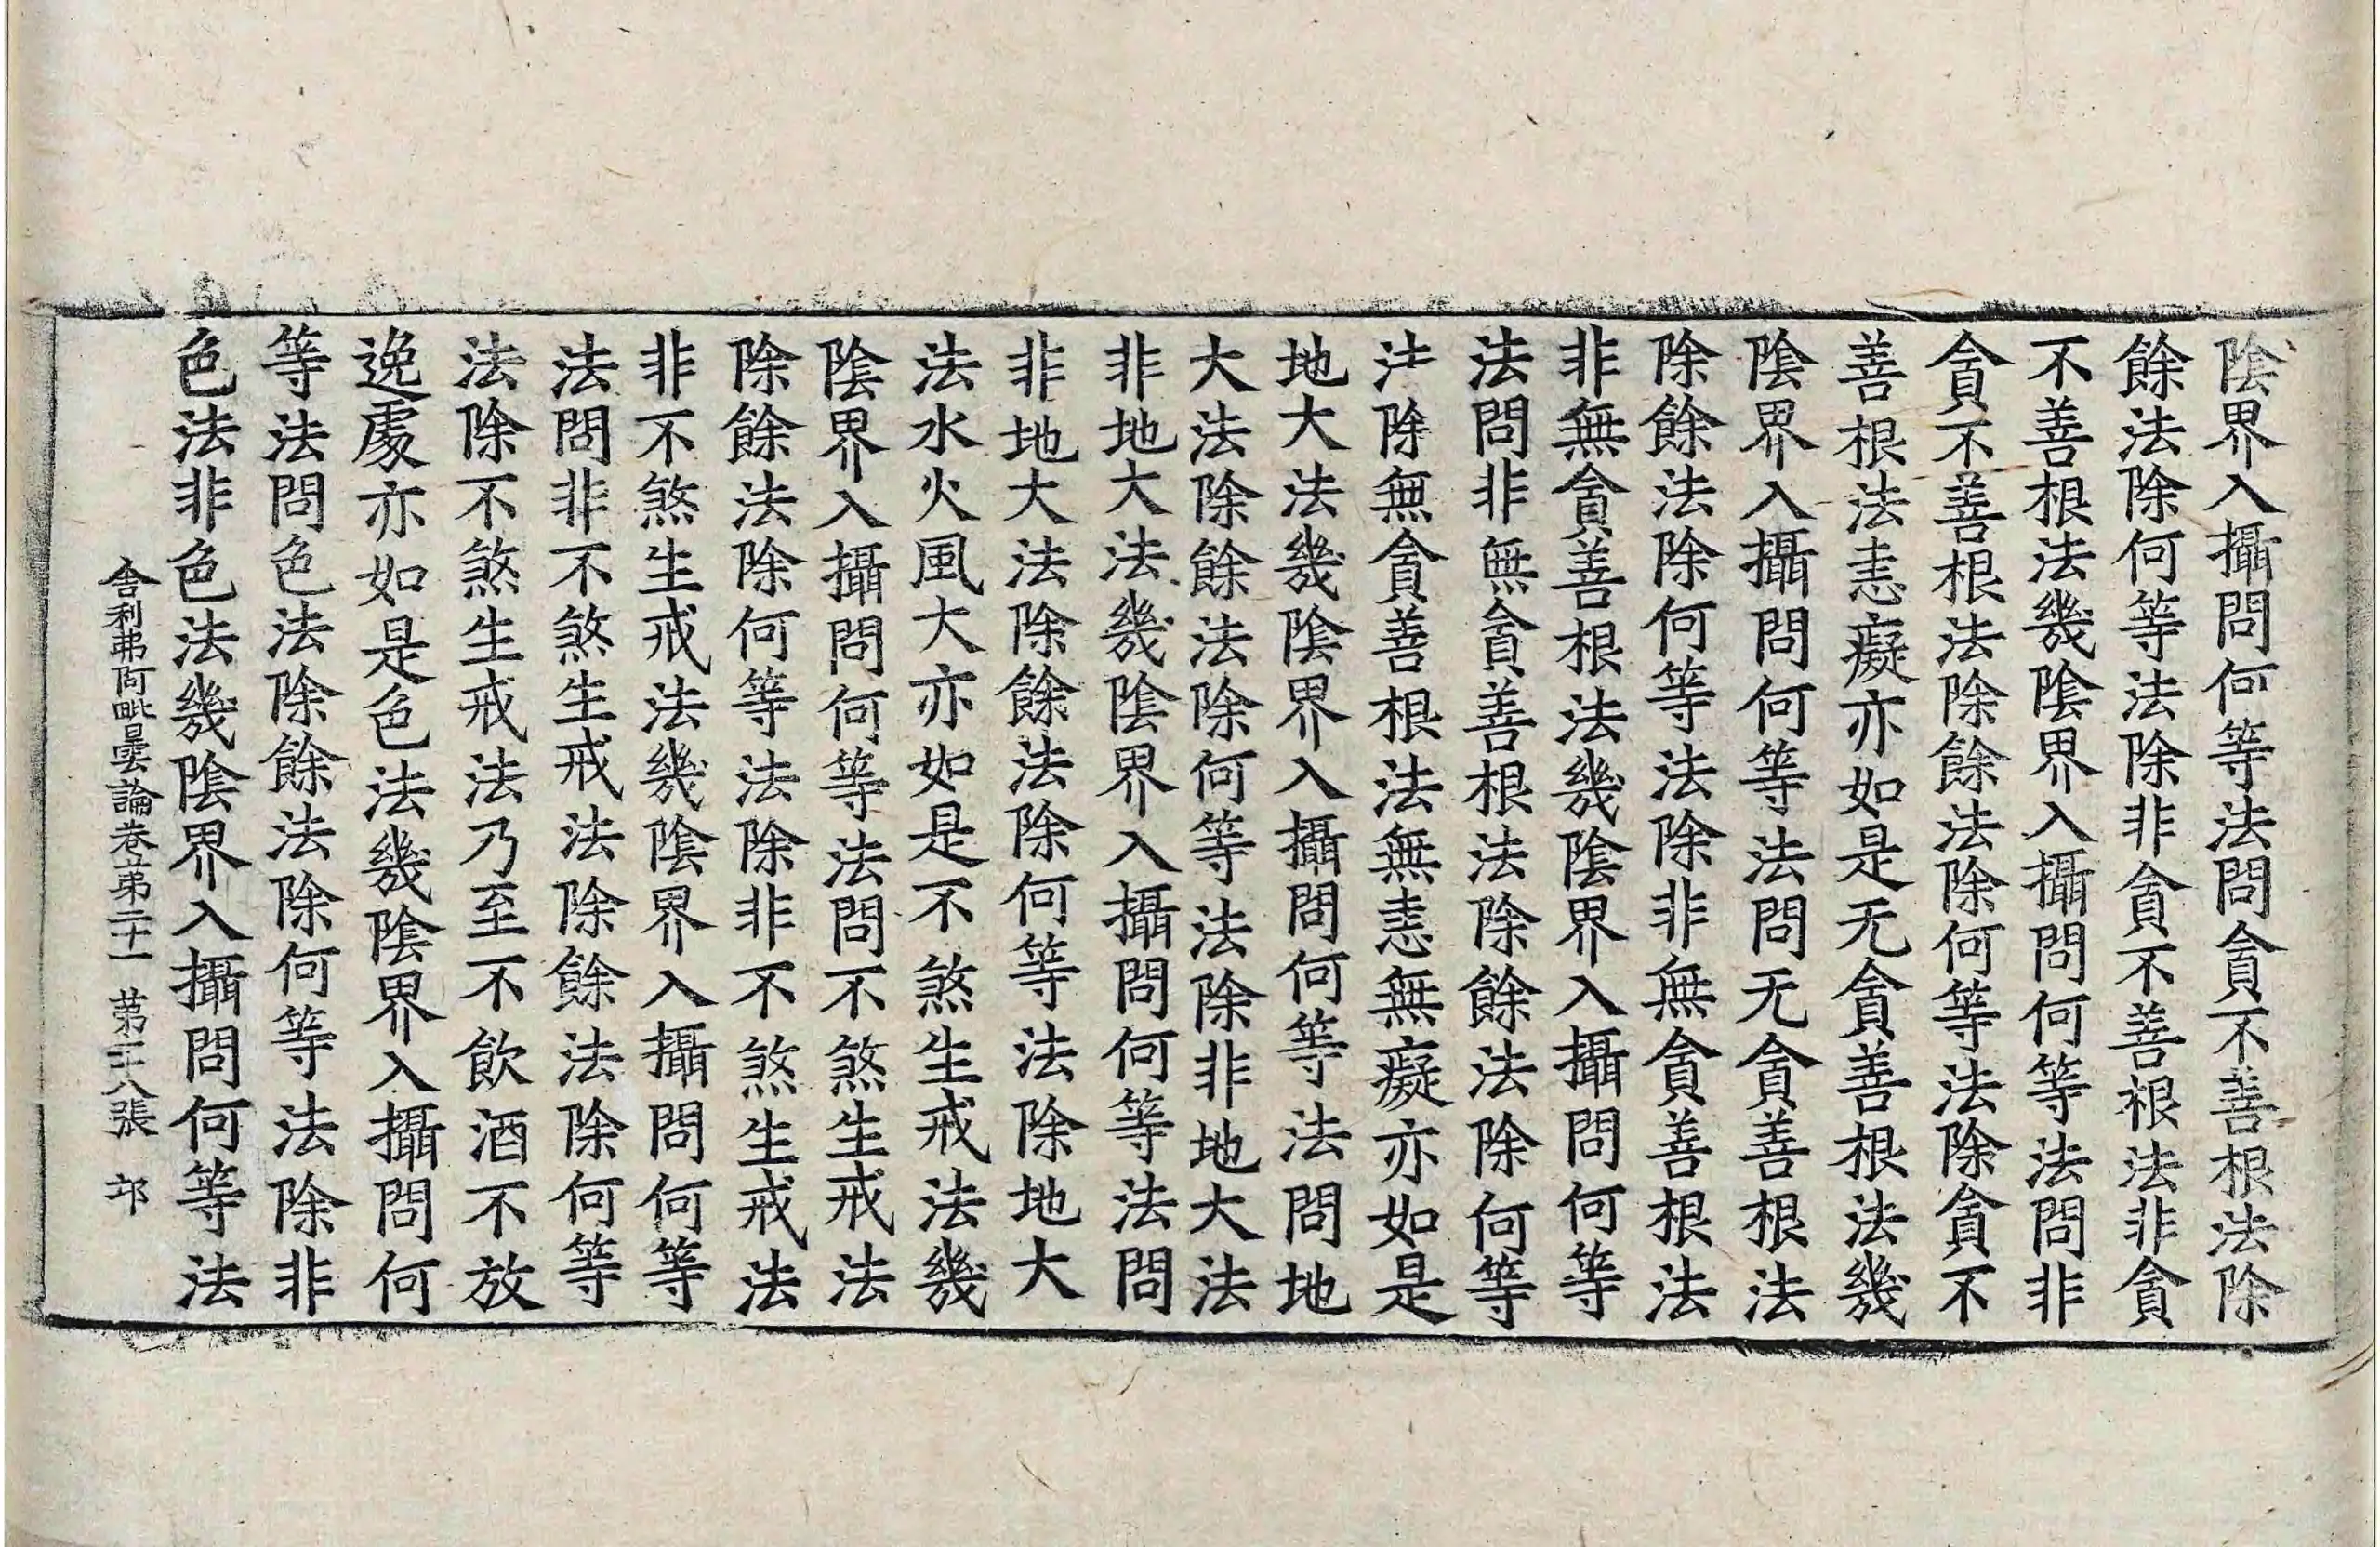 陰界入攝問何等法問貪不善根法除
餘法除何等法除非貪不善根法非貪
不善根法幾陰界入攝問何等法問非
貪不善根法除餘法除何等法除貪不
善根法恚癡亦如是无貪善根法幾
陰界入攝問何等法問无貪善根法
除餘法除何等法除非無貪善根法
非無貪善根法幾陰界入攝問何等
法問非無貪善根法除餘法除何等
法除無貪善根法無恚無癡亦如是
地大法幾陰界入攝問何等法問地
大法除餘法除何等法除非地大法
非地大法幾陰界入攝問何等法問
非地大法除餘法除何等法除地大
法水火風大亦如是不煞生戒法幾
陰界入攝問何等法問不煞生戒法
除餘法除何等法除非不煞生戒法
非不煞生戒法幾陰界入攝問何等
法問非不煞生戒法除餘法除何等
法除不煞生戒法乃至不飲酒不放
逸處亦如是色法幾陰界入攝問何
等法問色法除餘法除何等法除非
色法非色法幾陰界入攝問何等法
舍利弗阿毗曇論卷第二十一 第二十八張 邙